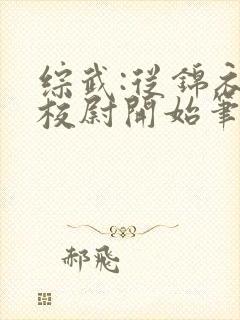 綜武:從錦衣
校尉開始筆
郝飛